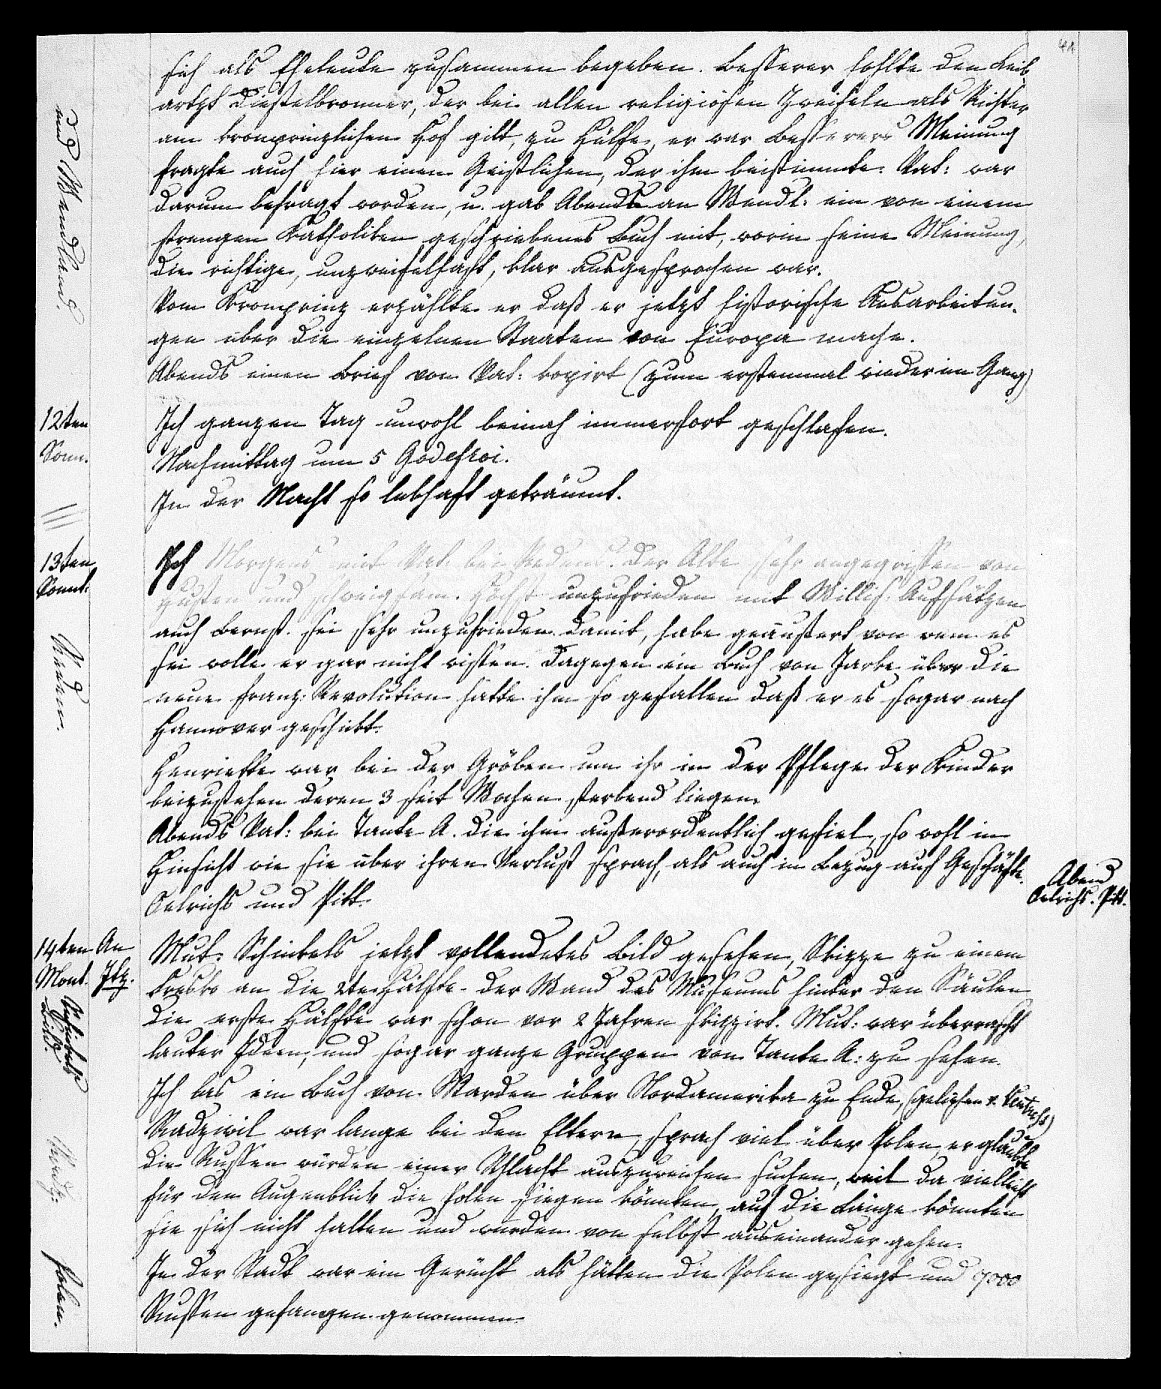 41
sich als Eheleute zusammen begeben. Besserer holte den Leib
artzt Diestelbronner, der bei allen religiösen Zweifeln als Richter
am kronprinzlichen Hof gilt, zu Hülfe, er war Besserers Meinung
fragte auch hier einen Geistlichen, der ihm beistimmte. Vat: war
darum befragt worden, u. gab Abends an Wendl: ein von einem
strengen Katholiken geschriebenes Buch mit, worin seine Meinung,
die richtige, unzweifelhaft, klar ausgesprochen war.
Vom Kronprinz erzählte er daß er jetzt historische Ausarbeitun-
gen über die einzelnen Staaten von Europa mache.
Abends einen Brief von Vat: kopirt (zum erstenmal wieder im Gang)
und Wendland
12ten
Sonn.
Ich ganzen Tag unwohl beinah immerfort geschlafen.
Nachmittag um 5 Godefroi.
In der Nacht so lebhaft geträumt.
13ten
Sonnt.
Ich Morgens mit Vat: bei Redens. Der Alte sehr angegriffen von
Husten und schweigsam. Höchst unzufrieden mit Willis: Aufsätzen
auch Bernst. sei sehr unzufrieden damit, habe geäußert von wem es
sei wolle er gar nicht wissen. Dagegen ein Buch von Jarke über die
neue franz: Revolution hatte ihm so gefallen daß er es sogar nach
Hannover geschickt.
Reden.
Henriette war bei der Gröben um ihr in der Pflege der Kinder
beizustehen deren 3 seit Wochen sterbend liegen.
Abends Vat: bei Tante A. die ihm außerordentlich gefiel, so wohl in
Hinsicht wie sie über ihren Verlust sprach, als auch in Bezug auf Geschäfte.
Oelrichs und Pitt.
Abend
Oelrichs. Pitt.
14ten An
Mont. Itz.
Schinkels
Bild.
Mut: Schinkels jetzt vollendetes Bild gesehen, Skizze zu einem
Fresko an die 2te Hälfte der Wand des Museums hinter den Säulen
die erste Hälfte war schon vor 2 Jahren skizzirt. Mut: war überrascht
lauter Ideen, und sogar ganze Gruppen von Tante A: zu sehen.
Ich las ein Buch von Warden über Nordamerika zu Ende, (geliehen v.
Radziwil war lange bei den Eltern, sprach viel über Polen, er glaubte
die Russen würden einer Schlacht auszuweichen suchen, weil da vielleicht
für den Augenblick die Polen siegen könnten, auf die Länge könnten
sie sich nicht halten und würden von selbst auseinander gehen.
In der Stadt war ein Gerücht als hätten die Polen gesiegt und 7000
Russen gefangen genommen.
Radz:
Polen.